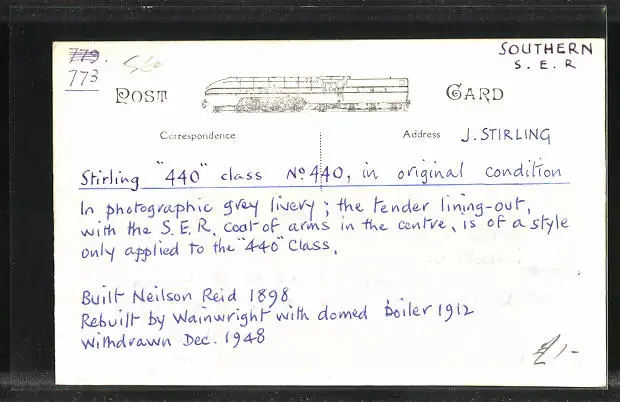 779.
773
SOUTHERN
S. E. R
POST CARD
Correspondence
Address
J. STIRLING
Stirling "440" class No 440, in original condition
In photographic grey livery; the tender lining-out,
with the S.E.R. coat of arms in the centre, is of a style
only applied to the "440" class.
Built Neilson Reid 1898
Rebuilt by Wainwright with domed boiler 1912
Withdrawn Dec. 1948
£1-